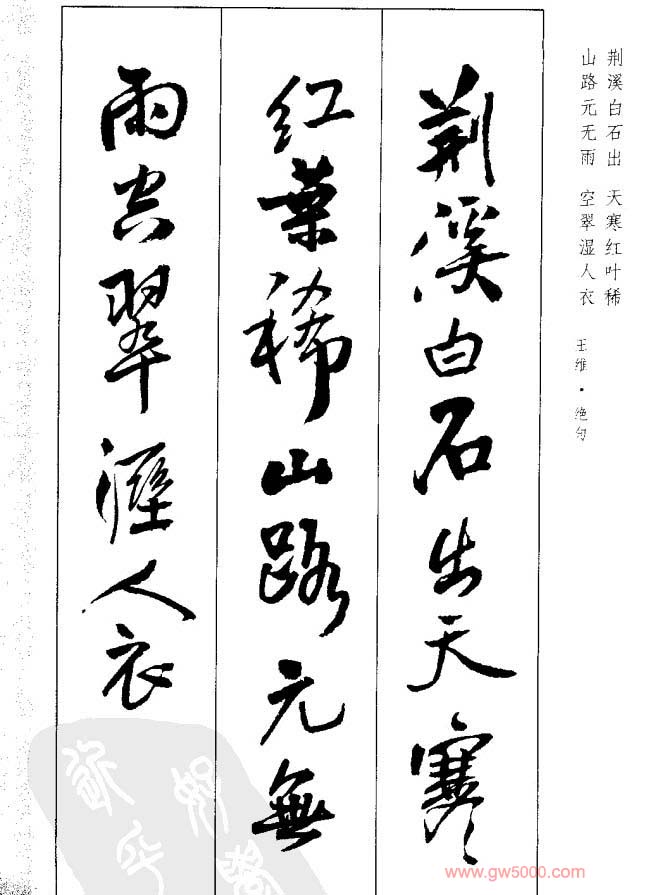 荆溪白石出　天寒红叶稀
山路元无雨　空翠湿人衣
王维·绝句
荆溪白石出天寒
红葉稀山路元無
雨空翠溼人衣
www.gw5000.com